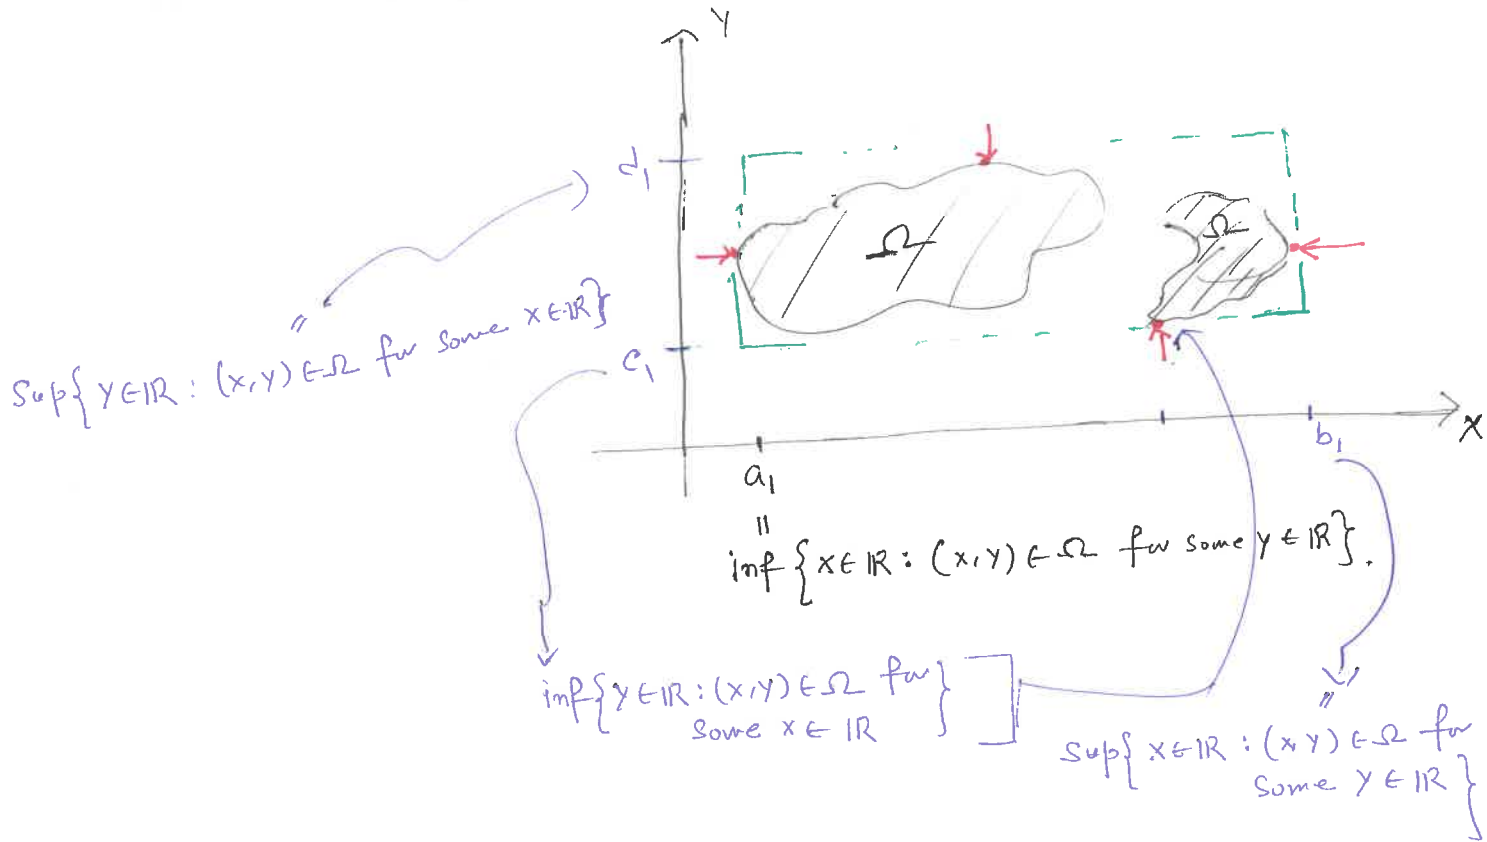 Y
d₁
Ω
Ω
Sup{Y∈ℝ : (x,y)∈Ω for some x∈ℝ}
"
c₁
X
b₁
a₁
"
inf{x∈ℝ : (x,y)∈Ω for some y∈ℝ}.
inf{y∈ℝ : (x,y)∈Ω for
some x∈ℝ}
"
Sup{x∈ℝ : (x,y)∈Ω for
Some y∈ℝ}